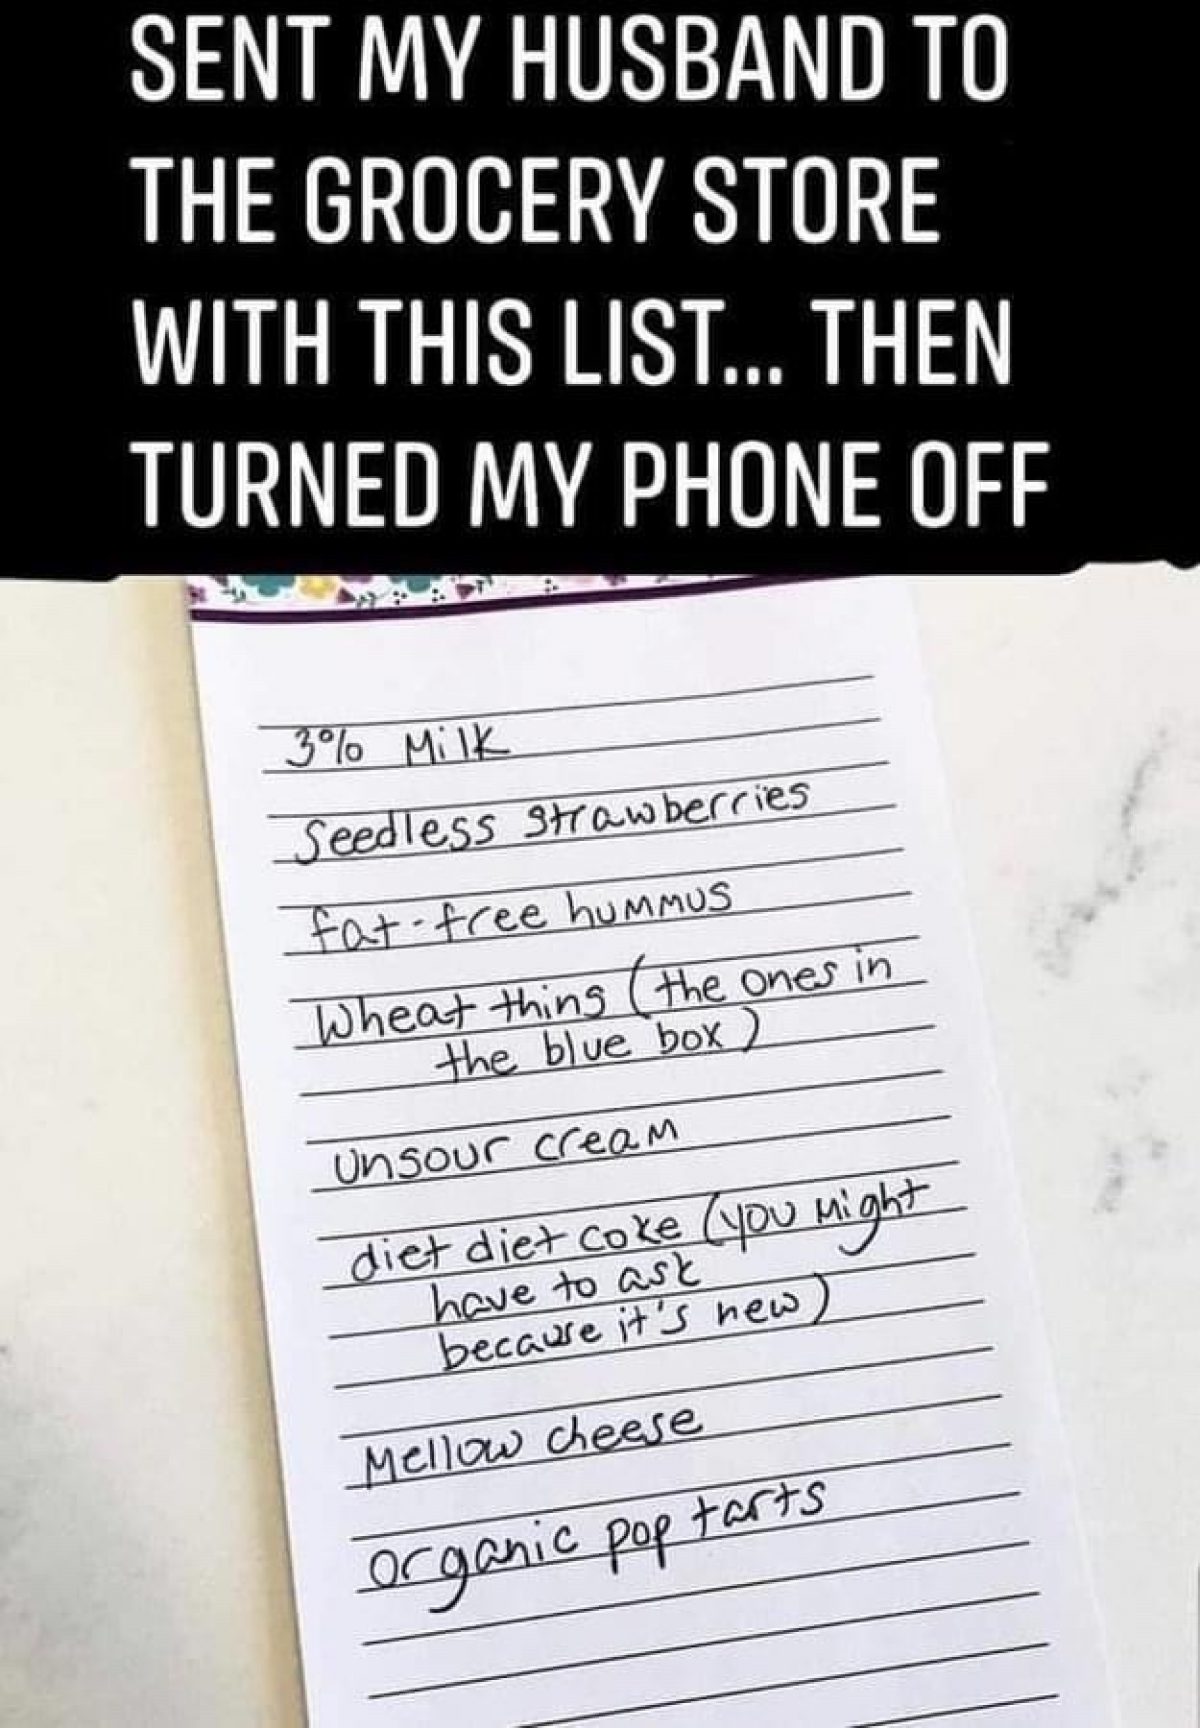 SENT MY HUSBAND TO
THE GROCERY STORE
WITH THIS LIST... THEN
TURNED MY PHONE OFF
3% Milk
Seedless strawberries
fat-free hummus
Wheat thing (the ones in
the blue box)
unsour cream
diet diet coke (you might
have to ask
because it's new)
Mellow cheese
organic pop tarts